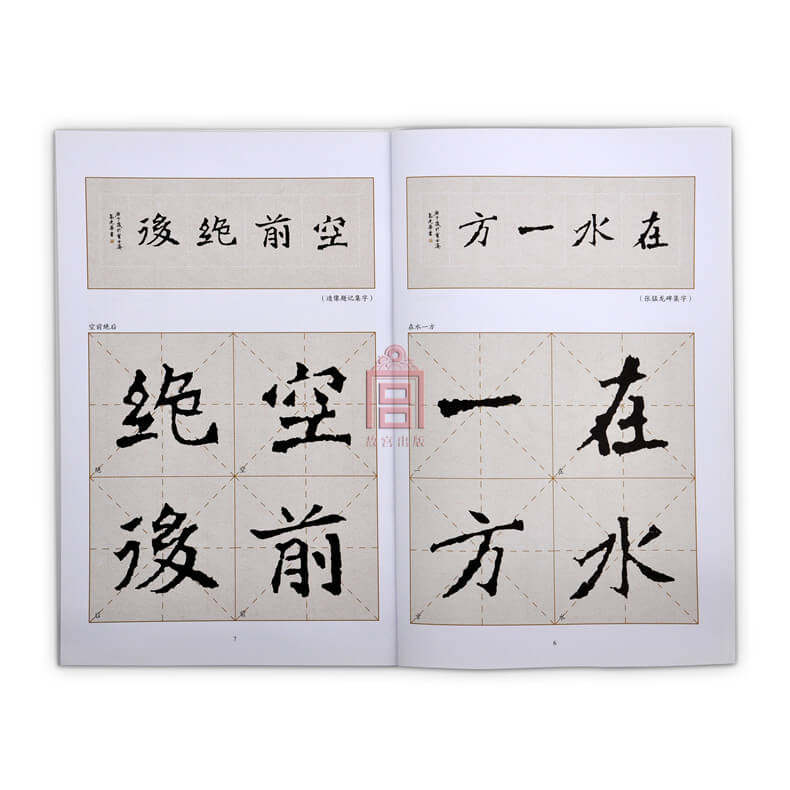 在水一方
（张猛龙碑集字）
在水一方
在水
在
水
一方
一
方
6
空前絶後
（造像题记集字）
空前绝后
空前
空
前
絶後
绝
后
7
故宫出版